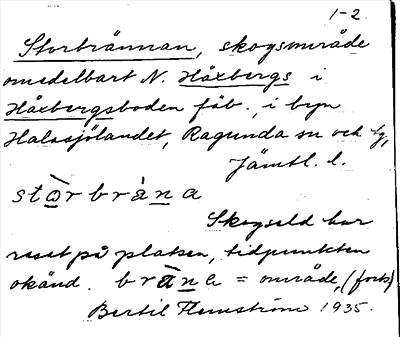 1-2.
Storbrännan, skogsområde
omedelbart N. Håxbergs i
Håxbergsboden fäb., i byn
Halasjölandet, Ragunda sn och tg,
Jämtl. l.
stòrbràna
Skogseld har
rasat på platsen, tidpunkten
okänd. brāna = område, (forts)
Bertil Flemström 1935.